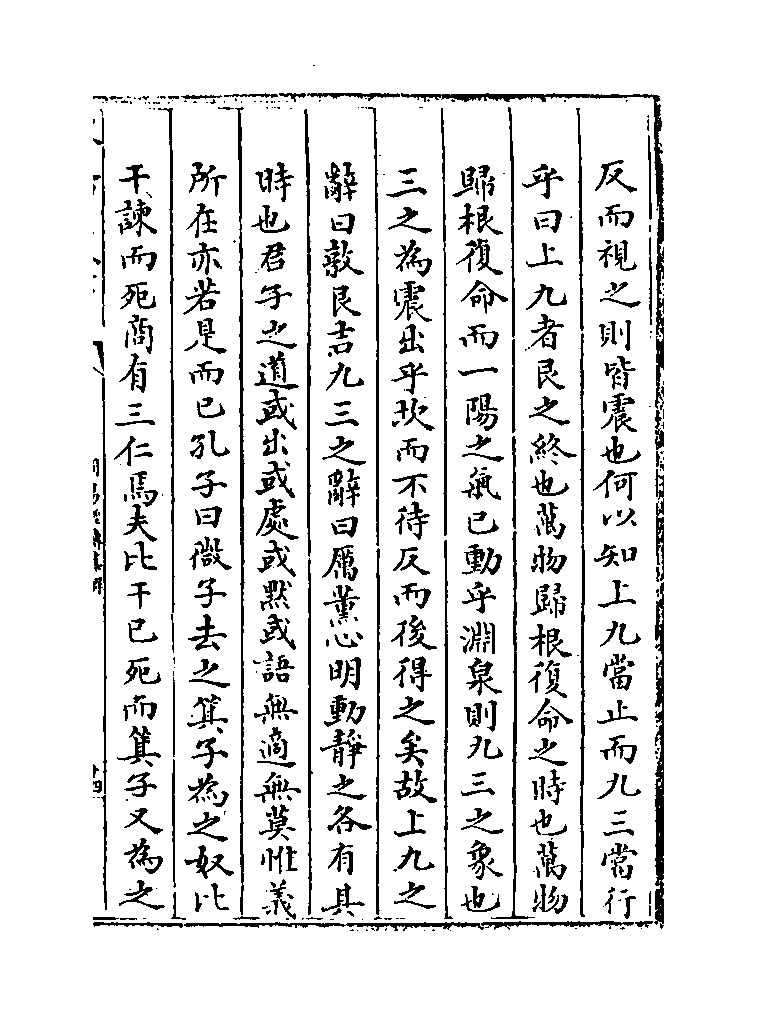 反而視之則皆震也何以知上九當止而九三當行
乎曰上九者艮之終也萬物歸根復命之時也萬物
歸根復命而一陽之氣已動乎淵泉則九三之象也
三之為震出乎坎而不待反而後得之矣故上九之
辭曰敦艮吉九三之辭曰厲薰心明動靜之各有其
時也君子之道或出或處或默或語無適無莫惟義
所在亦若是而已孔子曰微子去之箕子為之奴比
干諫而死商有三仁焉夫比干已死而箕子又為之
十四